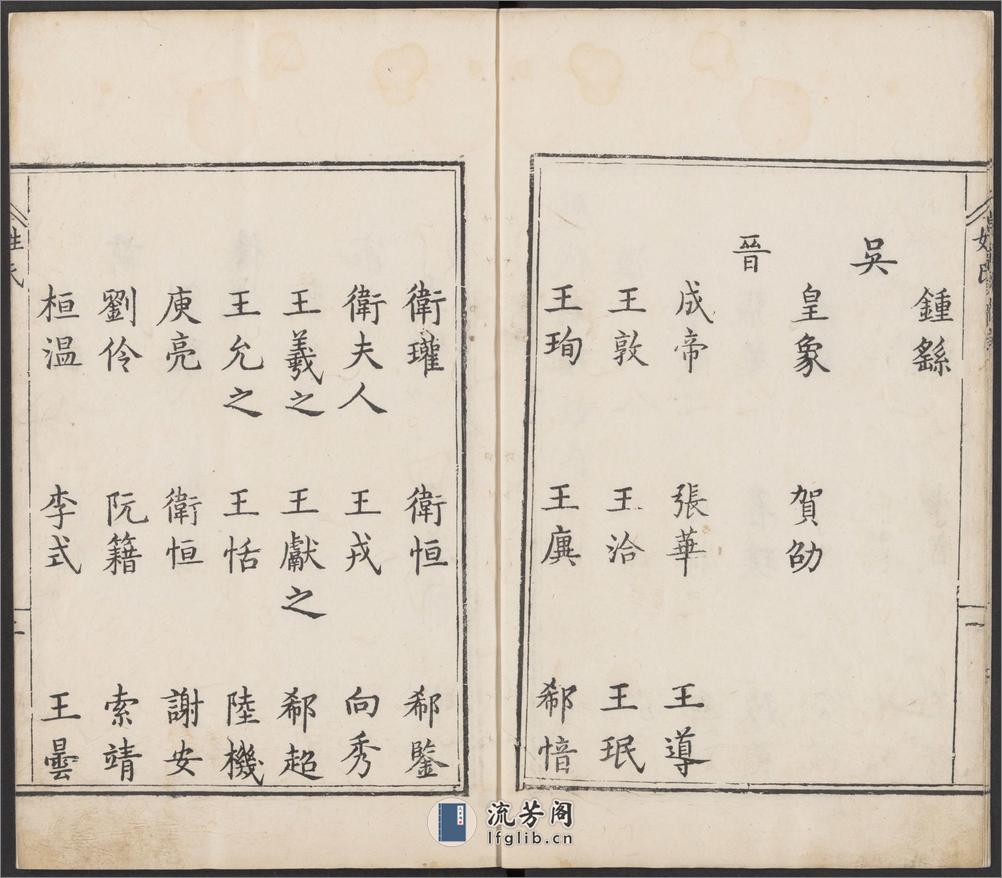 鍾繇
吳
皇象 賀劭
晉
成帝 張華 王導
王敦 王洽 王珉
王珣 王廙 郗愔
衛瓘 衛恒 郗鑒
衛夫人 王戎 向秀
王羲之 王獻之 郗超
王允之 王恬 陸機
庾亮 衛恒 謝安
劉伶 阮籍 索靖
桓溫 李式 王曇
姓氏
流芳阁
lfglib.cn